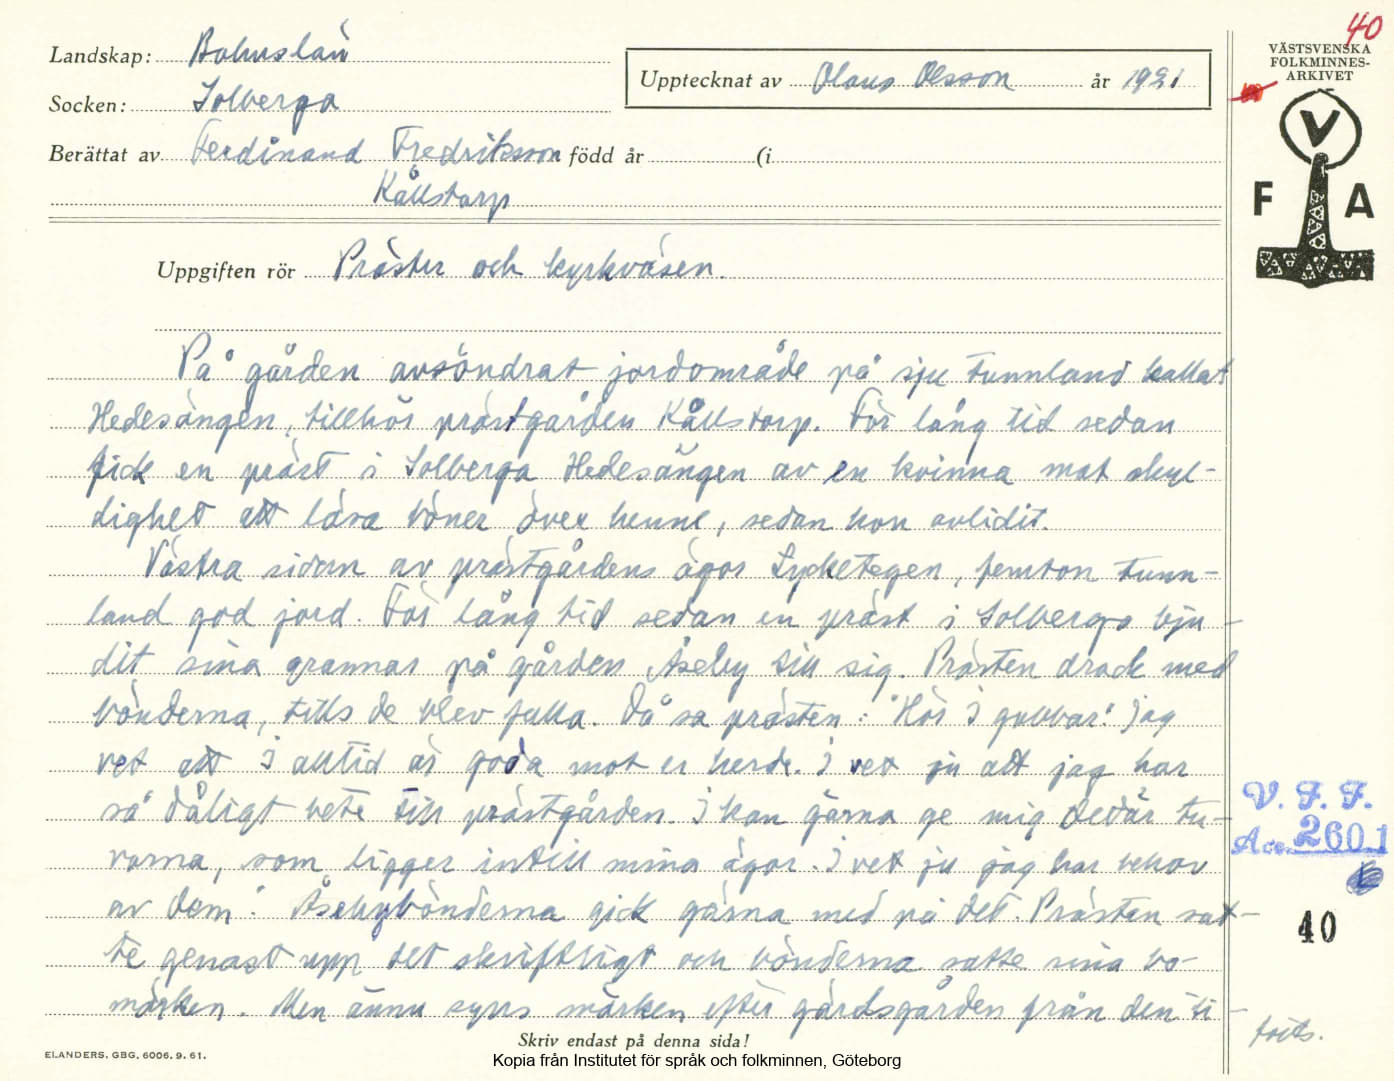 40
VÄSTSVENSKA
FOLKMINNES-
ARKIVET
V
F A
Landskap: Bohuslän
Socken: Solberga
Upptecknat av Olaus Olsson år 1921
Berättat av Ferdinand Fredriksson född år (i
Kållstorp
Uppgiften rör Präster och kyrkväsen.
På gården avsöndrat jordområde på sju tunnland kallat
Hedesängen, tillhör prästgården Kållstorp. För lång tid sedan
fick en präst i Solberga Hedesängen av en kvinna mot skyl-
dighet att läsa böner över henne, sedan hon avlidit.
Västra sidan av prästgårdens ägor Lycketegen, femton tunn-
land god jord. För lång tid sedan en präst i Solberga bju-
dit sina grannar på gården Åseby till sig. Prästen drack med
bönderna, tills de blev fulla. Då sa prästen: "Hör I gubbar! Jag
vet att I alltid är goda mot er herde. I vet ju att jag har
så dåligt bete till prästgården. I kan gärna ge mig dedär tu-
varna, som ligger intill mina ägor. I vet ju jag har behov
av dem". Åsebybönderna gick gärna med på det. Prästen sat-
te genast upp det skriftligt och bönderna satte sina bo-
märken. Men ännu syns märken efter gärdsgården från den ti-
forts.
V. F. F.
Acc. 2601
40
Skriv endast på denna sida!
ELANDERS. GBG. 6006. 9. 61.
Kopia från Institutet för språk och folkminnen, Göteborg